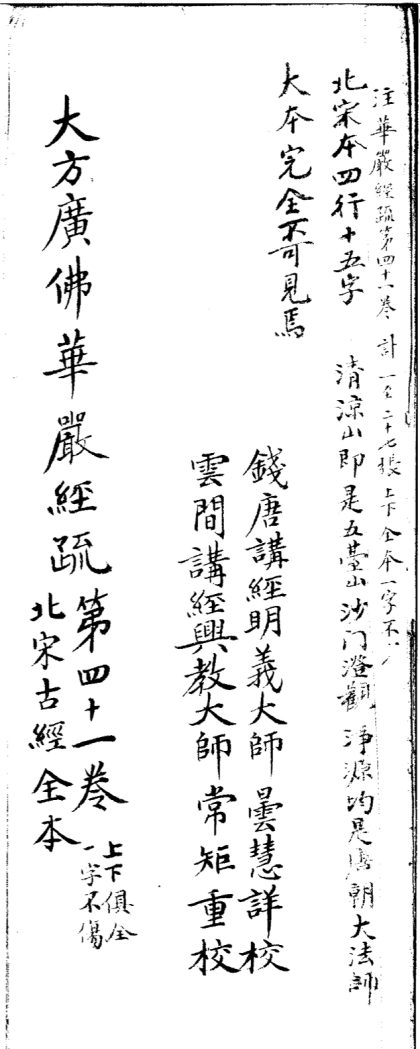 注華嚴經疏第四十一卷 計一至二十七張上下全本一字不
北宋本四行十五字 清涼山即是五臺山沙门澄觀淨源均是唐朝大法師
大本完全不可見焉
錢唐講經明義大師曇慧詳校
雲間講經興教大師常矩重校
大方廣佛華嚴經疏第四十一卷 上下俱全
一字不傷
北宋古經全本